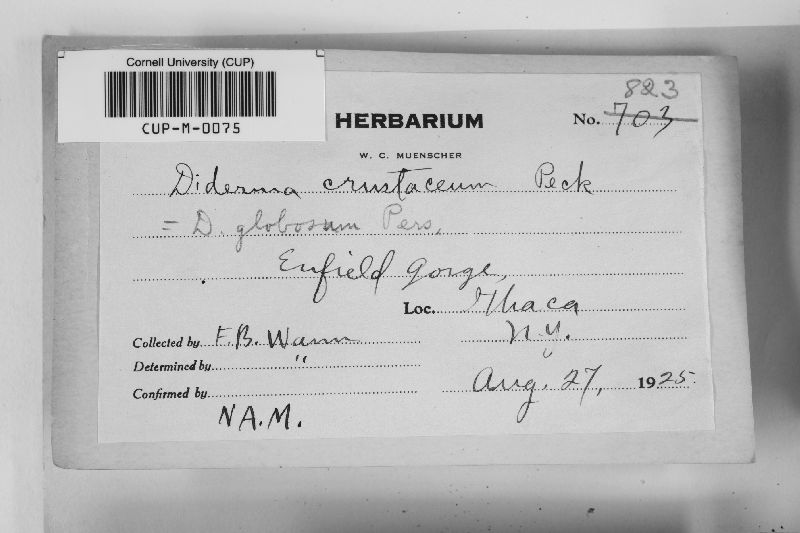 Cornell University (CUP)
CUP-M-0075
823
HERBARIUM No. 703
W. C. MUENSCHER
Diderma crustaceum Peck
= D. globosum Pers.
Enfield Gorge,
Loc. Ithaca
Collected by F.B. Wann N.Y.
Determined by "
Confirmed by Aug. 27, 1925
N.A.M.